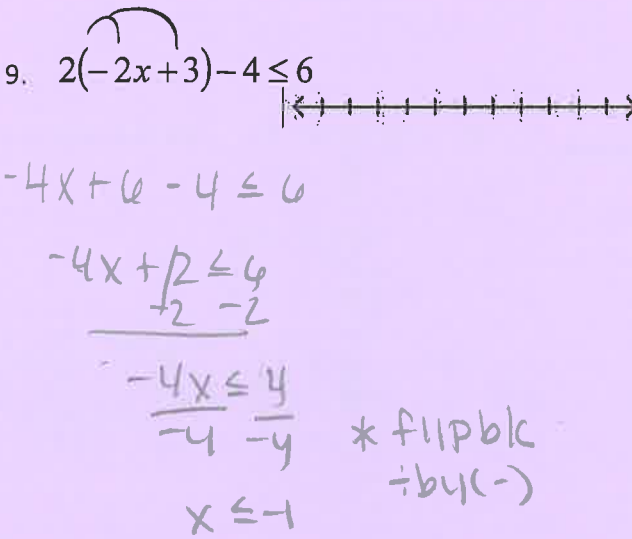 9. 2(-2x+3)-4≤6
-4x+6-4≤6
-4x+2≤6
-2 -2
-4x≤4
-4 -4
* flip b/c
÷ by (-)
x≤-1